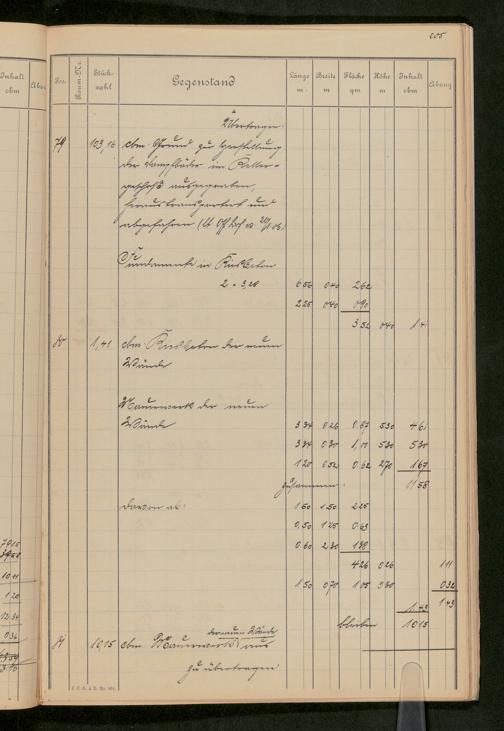 205
Pos. Raum-Nr. Stückzahl Gegenstand Länge m Breite m Fläche qm Höhe m Inhalt cbm Abzug
Übertrag:
79 103,16 cbm Grund zur Herstellung
der Dampfbäder im Keller-
geschoß ausgegraben,
heraustransportiert und
abgefahren
Fundamente in Kiesbeton
2 · 3,28 6 56 0 40 2 62
2 25 0 40 0 90
3 52 0 40 1 41
80 1,41 cbm Kiesbeton der neuen
Wände
Mauerwerk der neuen
Wände 3 34 0 26 0 87 5 30 4 61
3 34 0 30 1,00 5 30 5 30
1 20 0 52 0 62 2 70 1 67
zusammen: 11 58
davon ab: 1 50 1 50 2 25
0,50 1 25 0 63
0,60 2 30 1 38
4 26 0 26 1 11
1 50 0 70 1 05 0 30 0 32
1 43 1 43
bleiben 10 15
der neuen Wände
81 10,15 cbm Mauerwerk aus
zu übertragen
Inhalt cbm
10 11
1 20
12 34
0 36